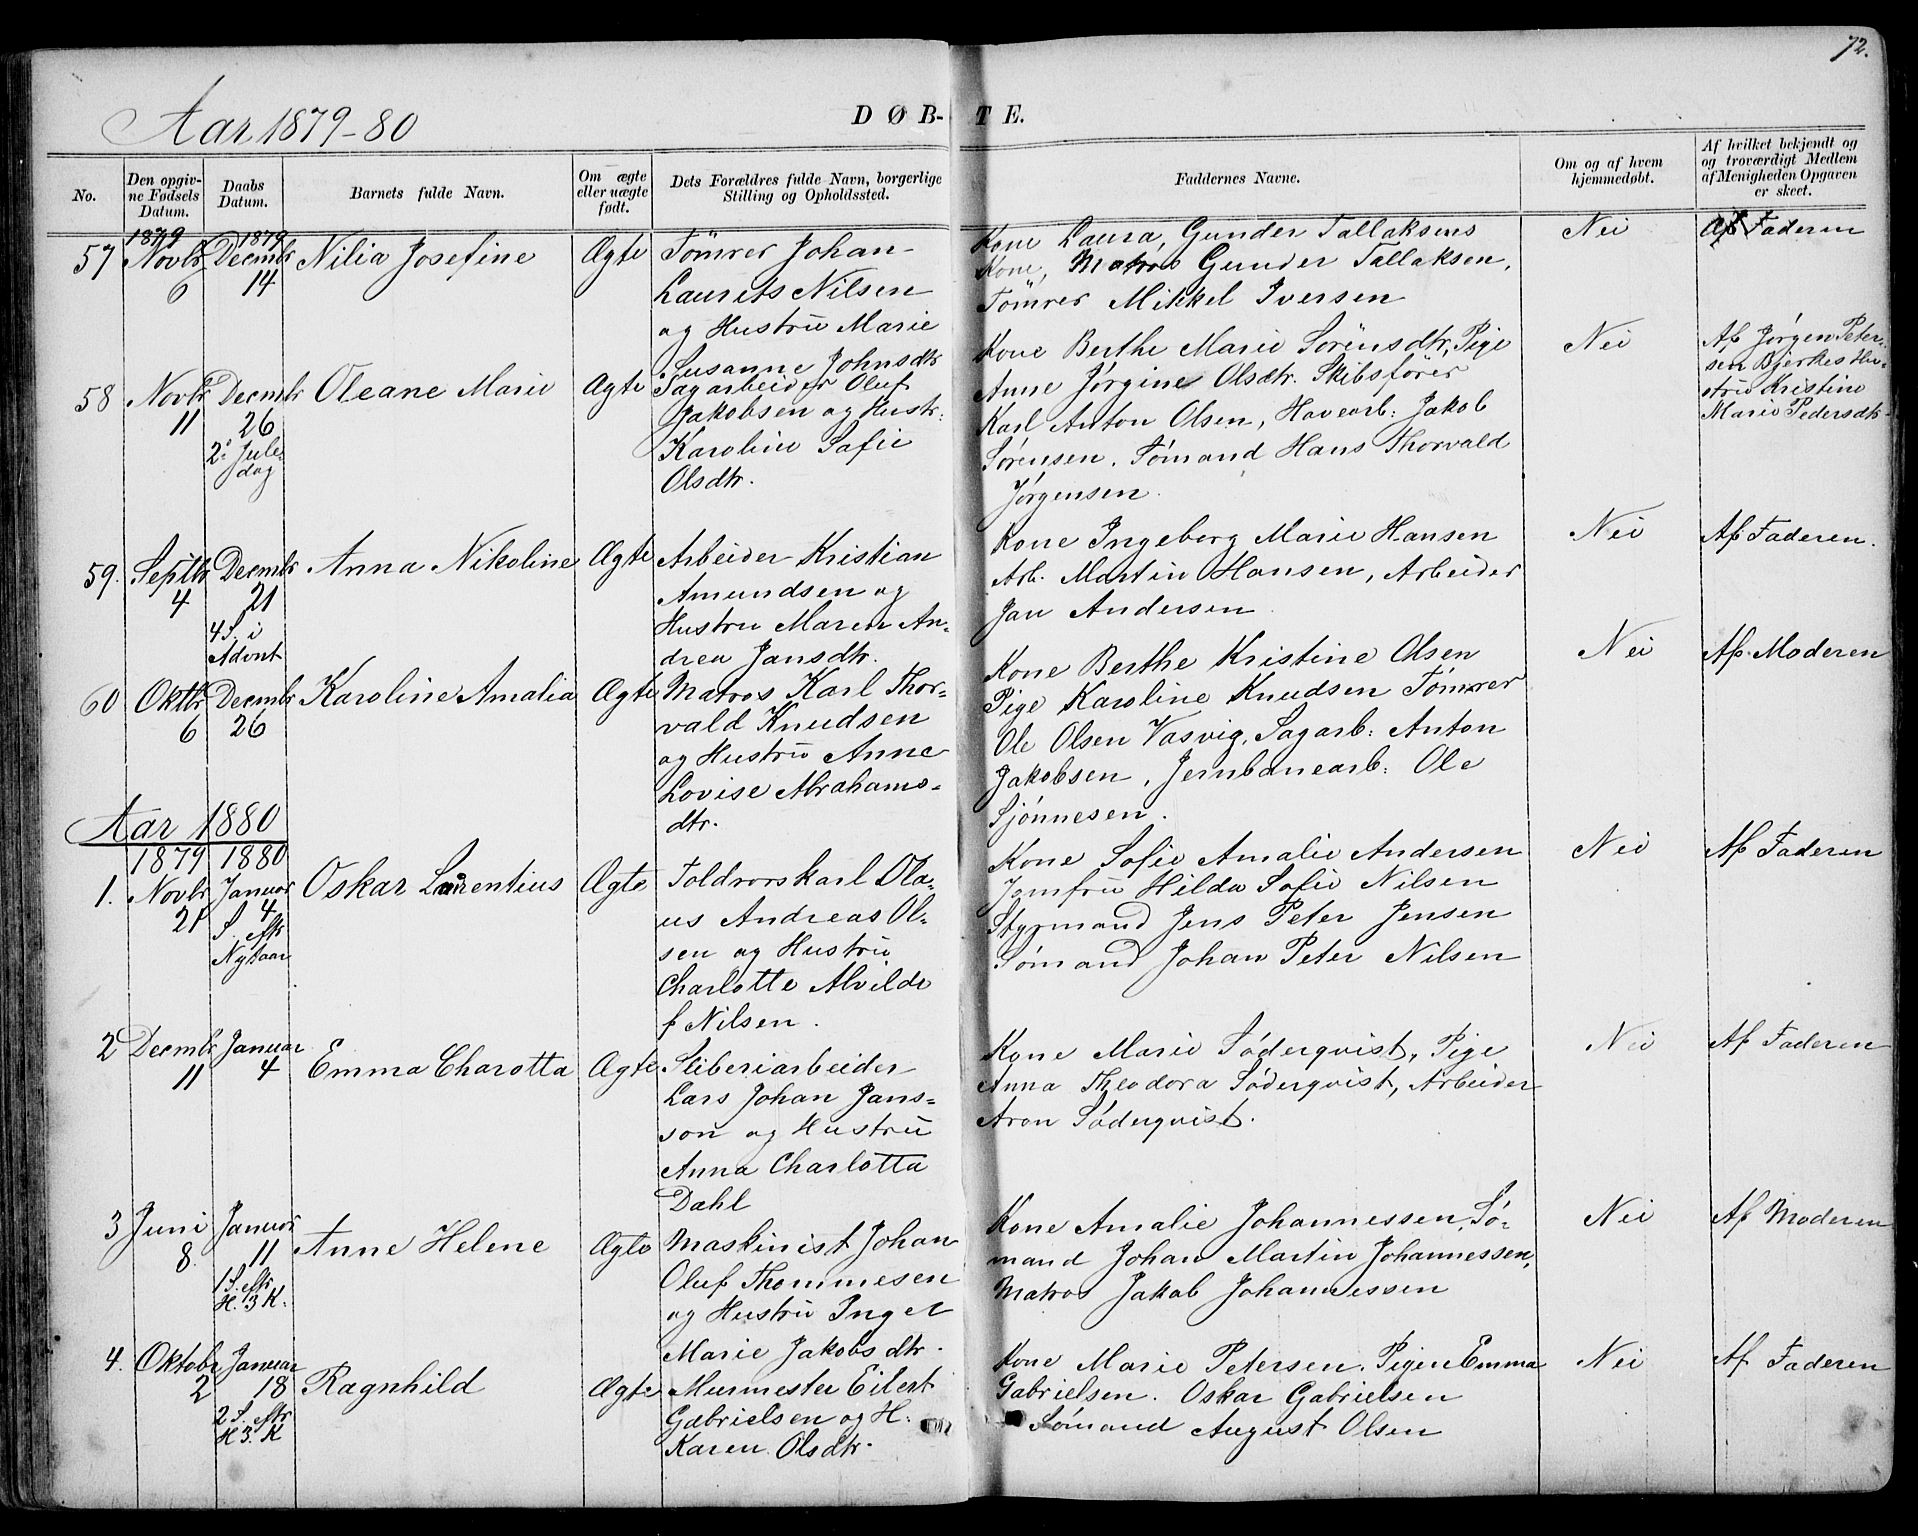 72.
Aar 1879-80
DØB-TE.
No.
Den opgiv-
ne Fødsels
Datum.
Daabs
Datum.
Barnets fulde Navn.
Om ægte
eller uægte
født.
Dets Forældres fulde Navn, borgerlige
Stilling og Opholdssted.
Faddernes Navne.
Om og af hvem
hjemmedøbt.
Af hvilket bekjendt og
og troværdigt Medlem
af Menigheden Opgaven
er skeet.
57
1879
Novbr
6
1879
Decmbr
14
Nilia Josefine
Ægte
Tömrer Johan
Laurits Nilsen
og Hustru Marie
Susanne Johnsdtr
Kone Laura, Gunder Tallaksens
Kone, Matros Gunder Tallaksen,
Tömrer Mikkel Iversen
Nei
Af Faderen
58
Novbr
11
Decmbr
26
2. Jule-
dag
Oleane Marie
Ægte
Sagarbeider Oluf
Jakobsen og Hustr:
Karoline Sofie
Olsdtr.
Kone Berthe Marie Sörensdtr, Pige
Anne Jørgine Olsdtr. Skibsförer
Karl Anton Olsen, Havearb: Jakob
Sörensen. Sömand Hans Thorvald
Jørgensen.
Nei
Af Jørgen Peter-
sen Bjerkes Hu-
stru Kristine
Marie Pedersdtr
59.
Septbr
4
Decmbr
21
4 S. i
Advent
Anna Nikoline
Ægte
Arbeider Kristian
Amundsen og
Hustru Maren An-
drea Jansdtr.
Kone Ingeborg Marie Hansen
Arb. Martin Hansen, Arbeider
Jan Andersen
Nei
Af Faderen.
60
Oktbr
6
Decmbr
26
Karoline Amalia
Ægte
Matros Karl Thor-
vald Knudsen
og Hustru Anne
Lovise Abrahams-
dtr.
Kone Berthe Kristine Olsen
Pige Karoline Knudsen Tömrer
Ole Olsen Vasvig, Sagarb: Anton
Jakobsen, Jernbanearb: Ole
Sjönnesen.
Nei
Af Moderen
Aar 1880
1.
1879
Novbr
21
1880
Januar
4
S. eftr
Nytaar
Oskar Laurentius
Ægte
Toldrorskarl Ola-
us Andreas Ol-
sen og Hustru
Charlotte Alvilde
f Nilsen.
Kone Sofie Amalie Andersen
Jomfru Hilda Sofie Nilsen
Styrmand Jens Peter Jensen
Sömand Johan Peter Nilsen
Nei
Af Faderen
2
Decmbr
11
Januar
4
Emma Charotta
Ægte
Sliberiarbeider
Lars Johan Jans-
son og Hustru
Anna Charlotta
Dahl
Kone Marie Söderqvist, Pige
Anna Theodora Söderqvist, Arbeider
Aron Söderqvist.
Nei
Af Faderen
3
Juni
8.
Januar
11
1 S. eftr
H. 3 K.
Anne Helene
Ægte
Maskinist Johan
Oluf Thommesen
og Hustru Inger
Marie Jakobsdtr.
Kone Amalie Johannessen, Sö-
mand Johan Martin Johannessen,
Matros Jakob Johannessen
Nei
Af Moderen
4.
Oktobr
2
Januar
18
2 S. eftr
H. 3. K
Ragnhild
Ægte
Murmester Eilert
Gabrielsen og H.
Karen Olsdtr.
Kone Marie Petersen. Pigen Emma
Gabrielsen. Oskar Gabrielsen
Sömand August Olsen
Nei
Af Faderen